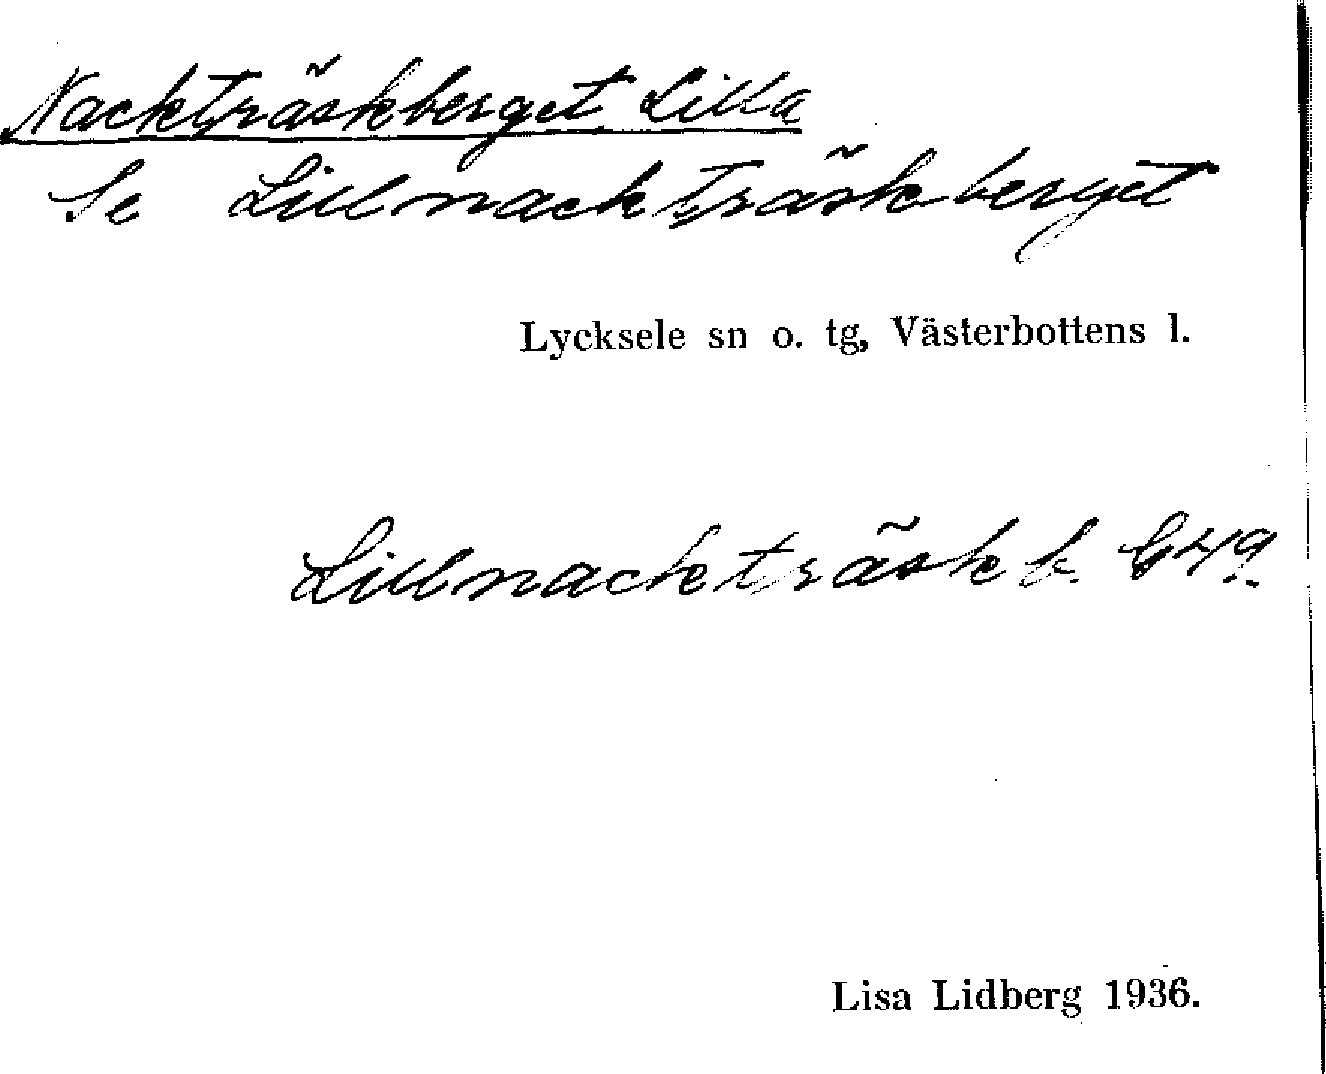 Nackträskberget, Lilla
Se Lillnackträskberget
Lycksele sn o. tg, Västerbottens l.
Lillnackträsk b. G49.
Lisa Lidberg 1936.